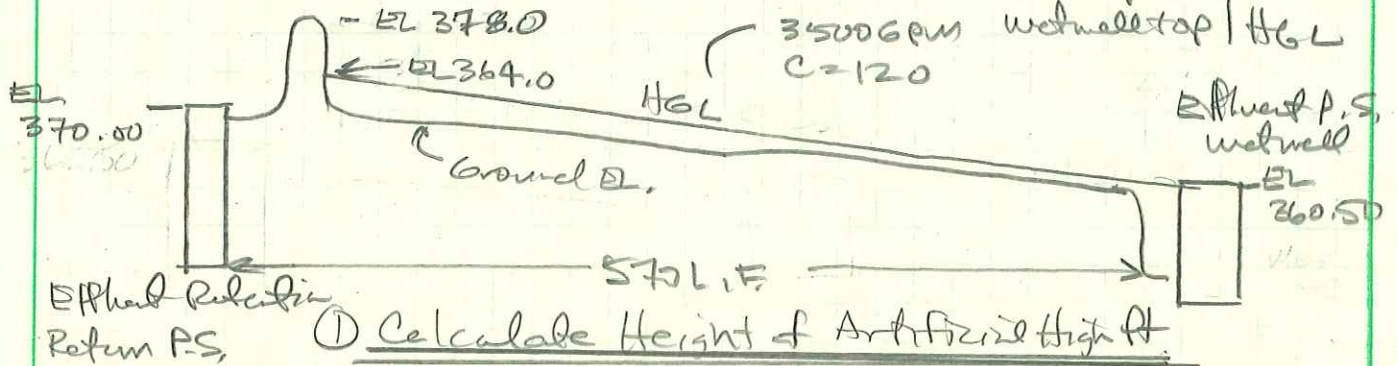 EL 378.0
EL 364.0
3500 GPM wetwell top / HGL
C=120
HGL
EL
370.00
Ground EL.
Effluent P.S.
wetwell
EL
260.50
570 L.F.
Effluent Retention
Return P.S.
① Calculate Height of Artificial High Pt.